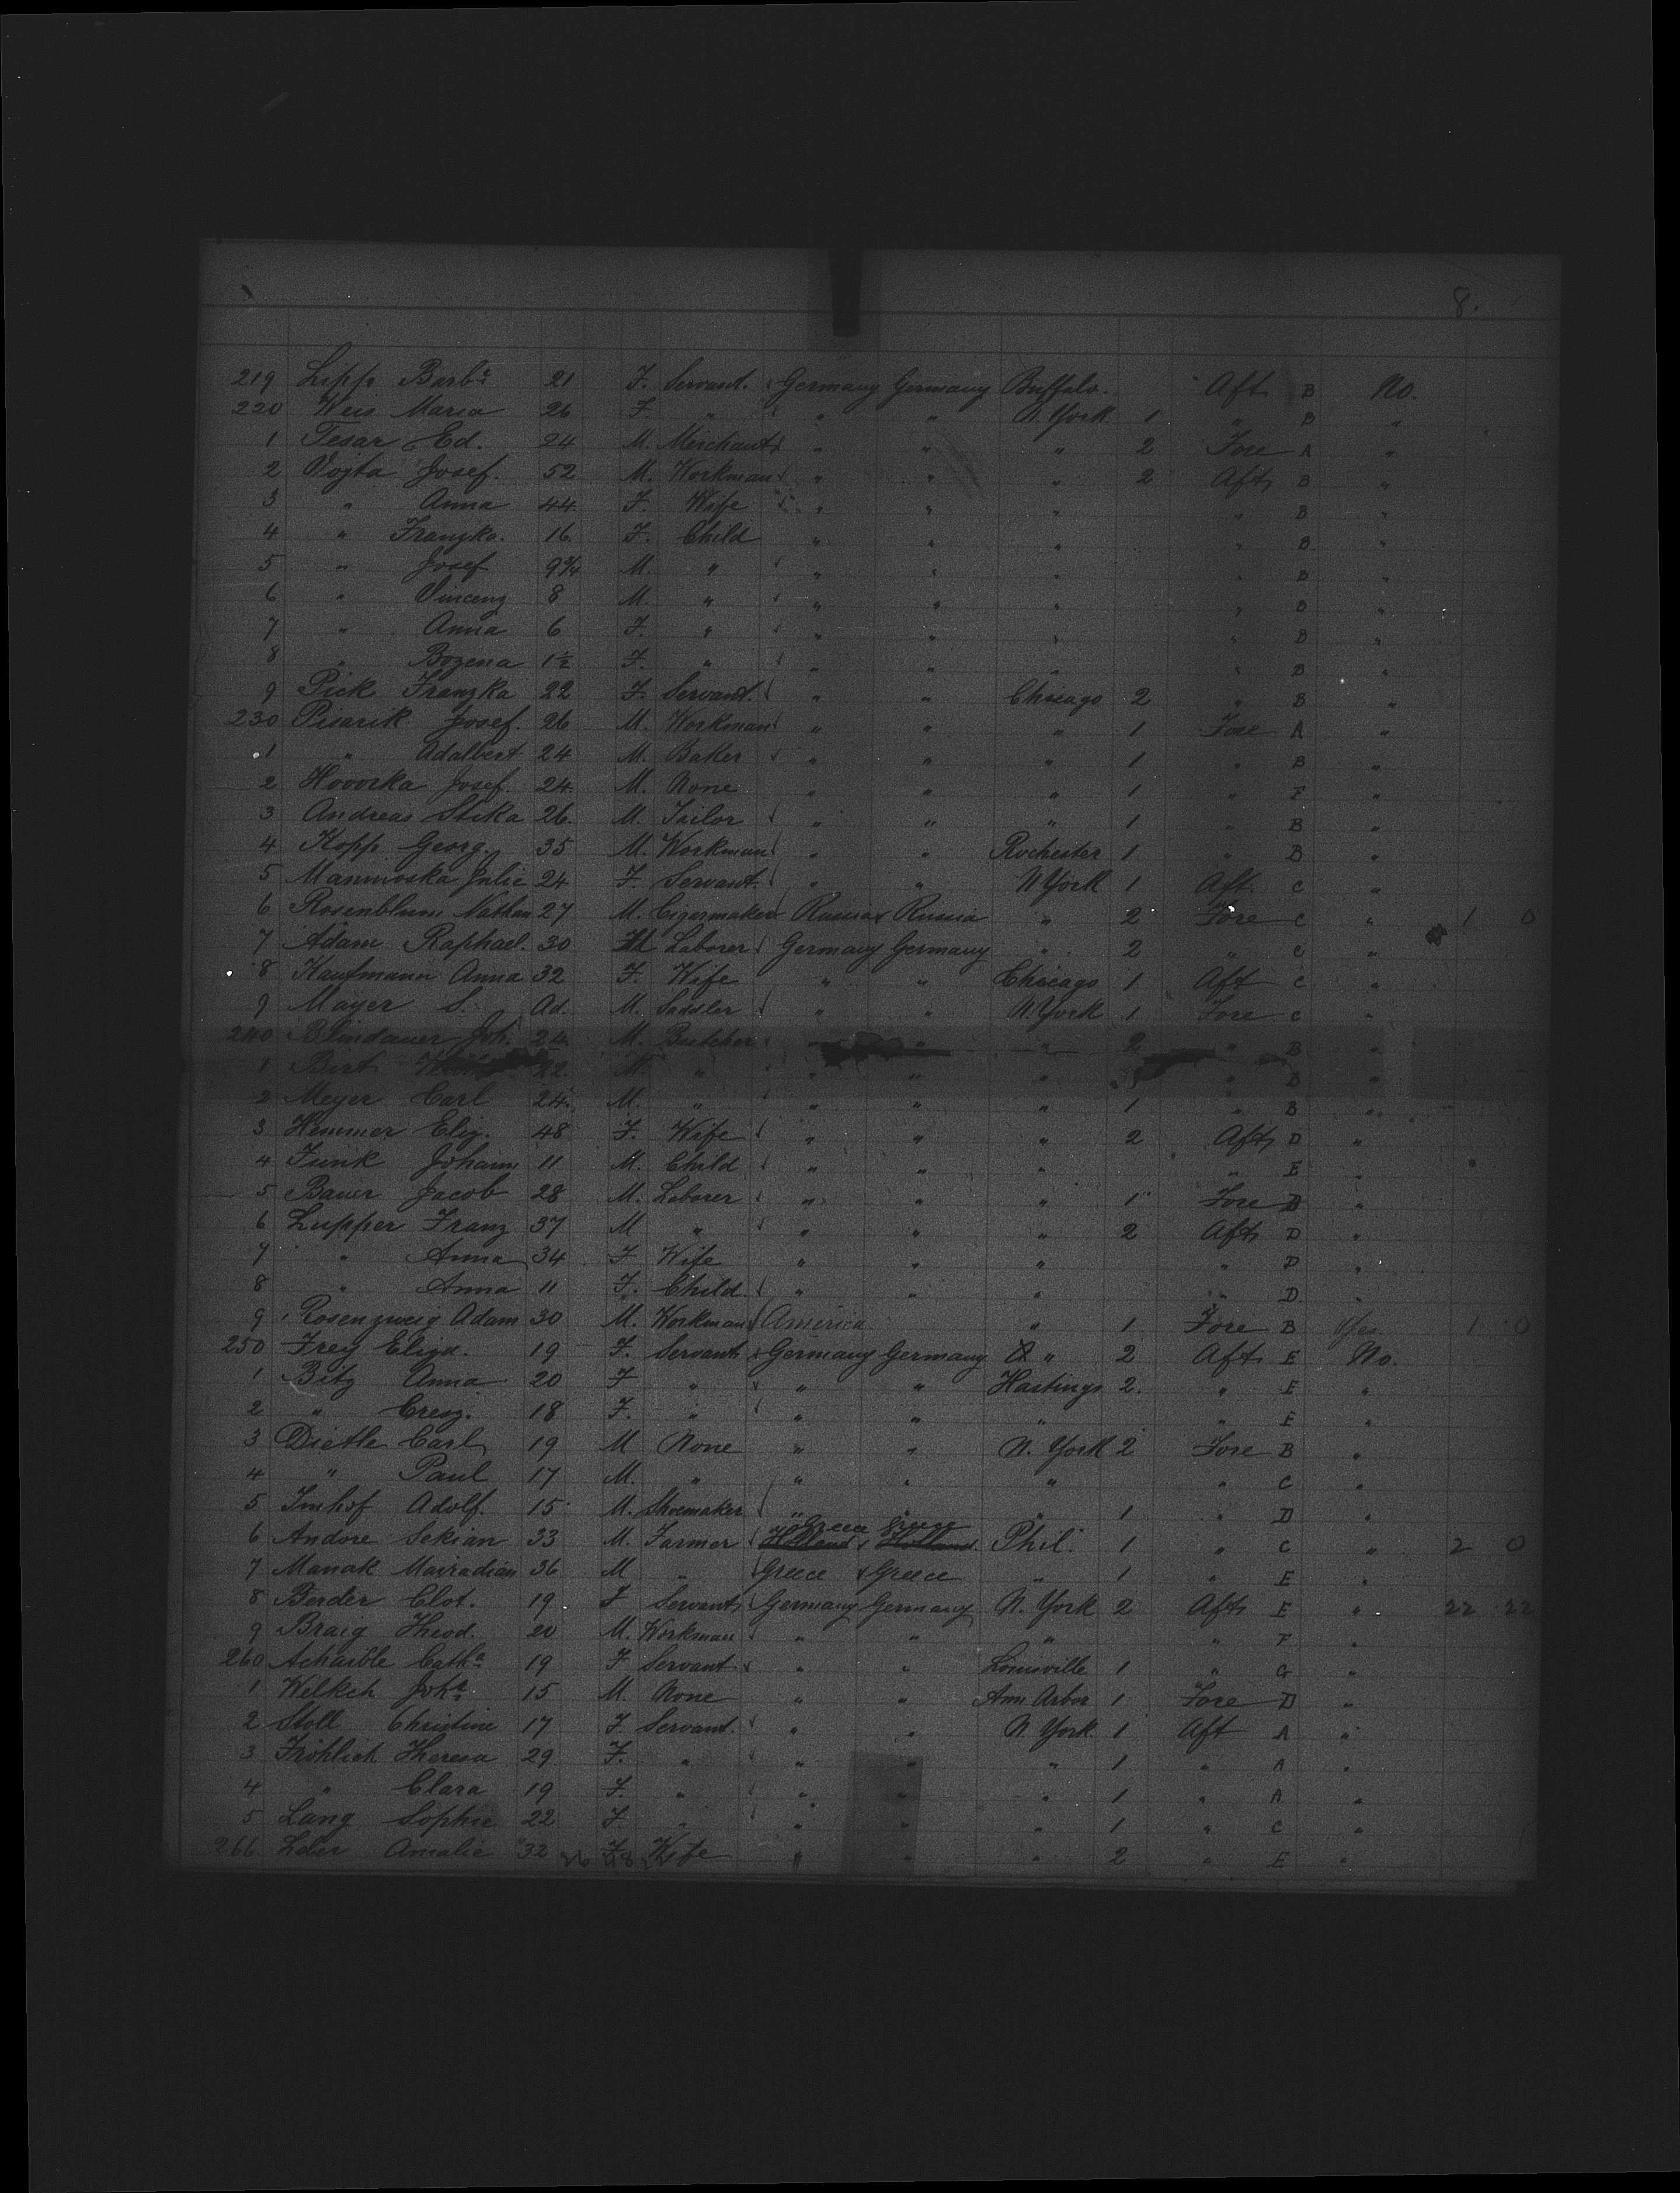 8.
219 Lipp Barbª 21 F. Servant. Germany Germany Buffalo. Aft B No.
220 Weis Maria 26 F. " " " N. York 1 " B "
1 Tesar Ed. 24 M. Merchant " " " 2 Fore A "
2 Vojta Josef. 52 M. Workman " " " 2 Aft B "
3 " Anna 44 F. Wife " " " " B "
4 " Franzka. 16. F. Child " " " " B "
5 " Josef 9¾ M. " " " " " B "
6 " Vincenz 8 M. " " " " " B "
7 " Anna 6 F. " " " " " B "
8 " Bozena 1½ F. " " " " " B "
9 Pick Franzka 22 F. Servant. " " Chicago 2 " B "
230 Pisarik Josef. 26 M. Workman " " " 1 Fore A "
1 " Adalbert 24 M. Baker " " " 1 " B "
2 Hovorka Josef. 24. M. None " " " 1 " F "
3 Andreas Stika 26. M. Tailor " " " 1 " B "
4 Kopp Georg. 35 M. Workman " " Rochester 1 " B "
5 Julie 24 F. Servant. " " N York 1 Aft. C "
6 Rosenblum Nathan 27 M. Cigarmaker Russia Russia " 2 Fore C " 1 0
7 Adam Raphael. 30 M Laborer Germany Germany " 2 " C "
8 Kaufmann Anna 32 F. Wife " " Chicago 1 Aft C "
9 Mayer S. Ad. M. Saddler " " N. York 1 Fore C "
240 Blindauer Joh. 24. M. Butcher " " " 2 " B "
1 Birt 22. M. " " " " " B "
2 Meyer Carl 24. M. " " " " 1 " B "
3 Hemmer Eliz. 48 F. Wife " " " 2 Aft D "
4 Funk Johann 11 M. Child " " " " E "
5 Bauer Jacob 28 M. Laborer " " " 1 Fore B "
6 Lupper Franz 37 M " " " " 2 Aft D "
7 " Anna 34 F Wife " " " " D "
8 " Anna 11 F. Child. " " " " D. "
9 Rosenzweig Adam 30 M. Workman America " 1 Fore B Yes 1 0
250 Frey Eliza. 19 F. Servant Germany Germany " 2 Aft E No.
1 Bitz Anna 20 F " " " Hastings 2. " E "
2 " Cresz. 18 F. " " " " " E "
3 Dietle Carl 19 M None " " N. York 2 Fore B "
4 " Paul 17 M. " " " " " C "
5 Imhof Adolf. 15 M. Shoemaker " " " 1 " D "
Greece Greece
6 Andore Sekian 33 M. Farmer Holland Holland Phil. 1 " C " 2 0
7 Manak Mairadian 36 M " Greece Greece " 1 " E "
8 Berder Clot. 19 F Servant Germany Germany N. York 2 Aft E " 22 22
9 Braig Theod. 20 M. Workman " " " " F "
260 Achaible Cathª 19 F Servant " " Louisville 1 " G "
1 Welkch Johª 15 M. None " " Ann Arbor 1 Fore D "
2 Stoll Christine 17 F. Servant. " " N York. 1 Aft A "
3 Fröhlich Theresa 29 F. " " " " 1 " A "
4 " Clara 19 F. " " " " 1 " A "
5 Lang Sophie 22 F " " " " 1 " C "
266. Amalie 32 F. Wife " " " 2 " E "